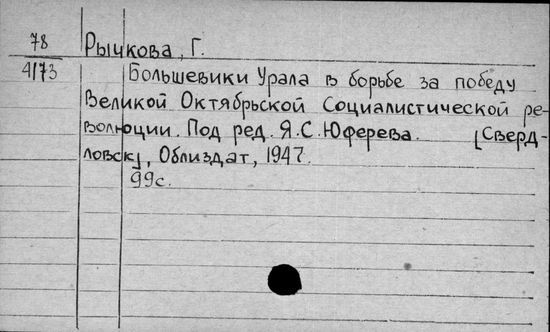 78 Рычкова, Г.
4173 Большевики Урала в борьбе за победу
Великой Октябрьской Социалистической ре-
волюции. Под ред. Я.С. Юферева. [Сверд-
ловск], Облиздат, 1947.
99с.